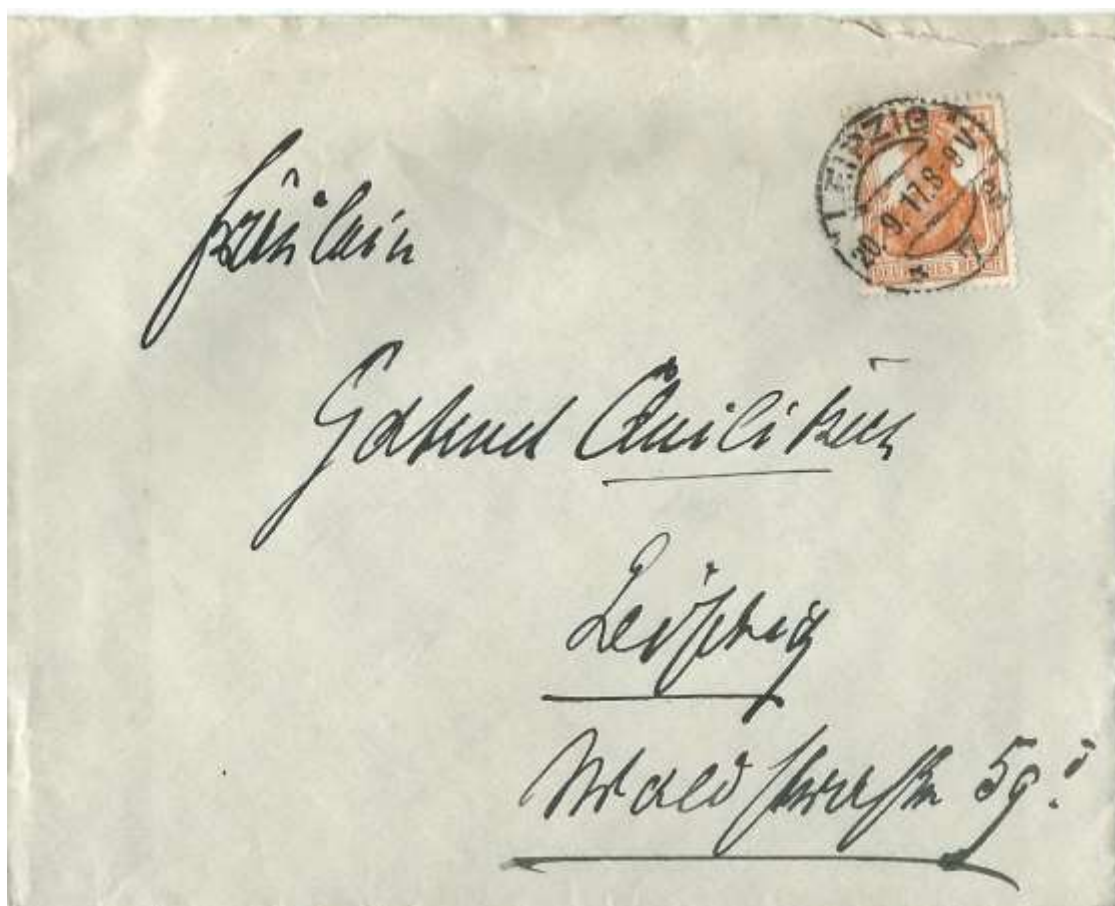 LEIPZIG
20.9.17.8-9V
DEUTSCHES REICH
Fräulein
Gertrud
Leipzig
Waldstraße 59.